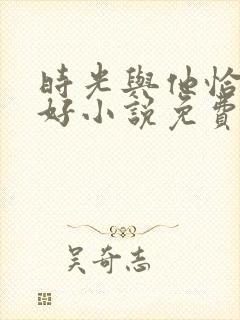 時光與他恰
好小說免費
吴奇志